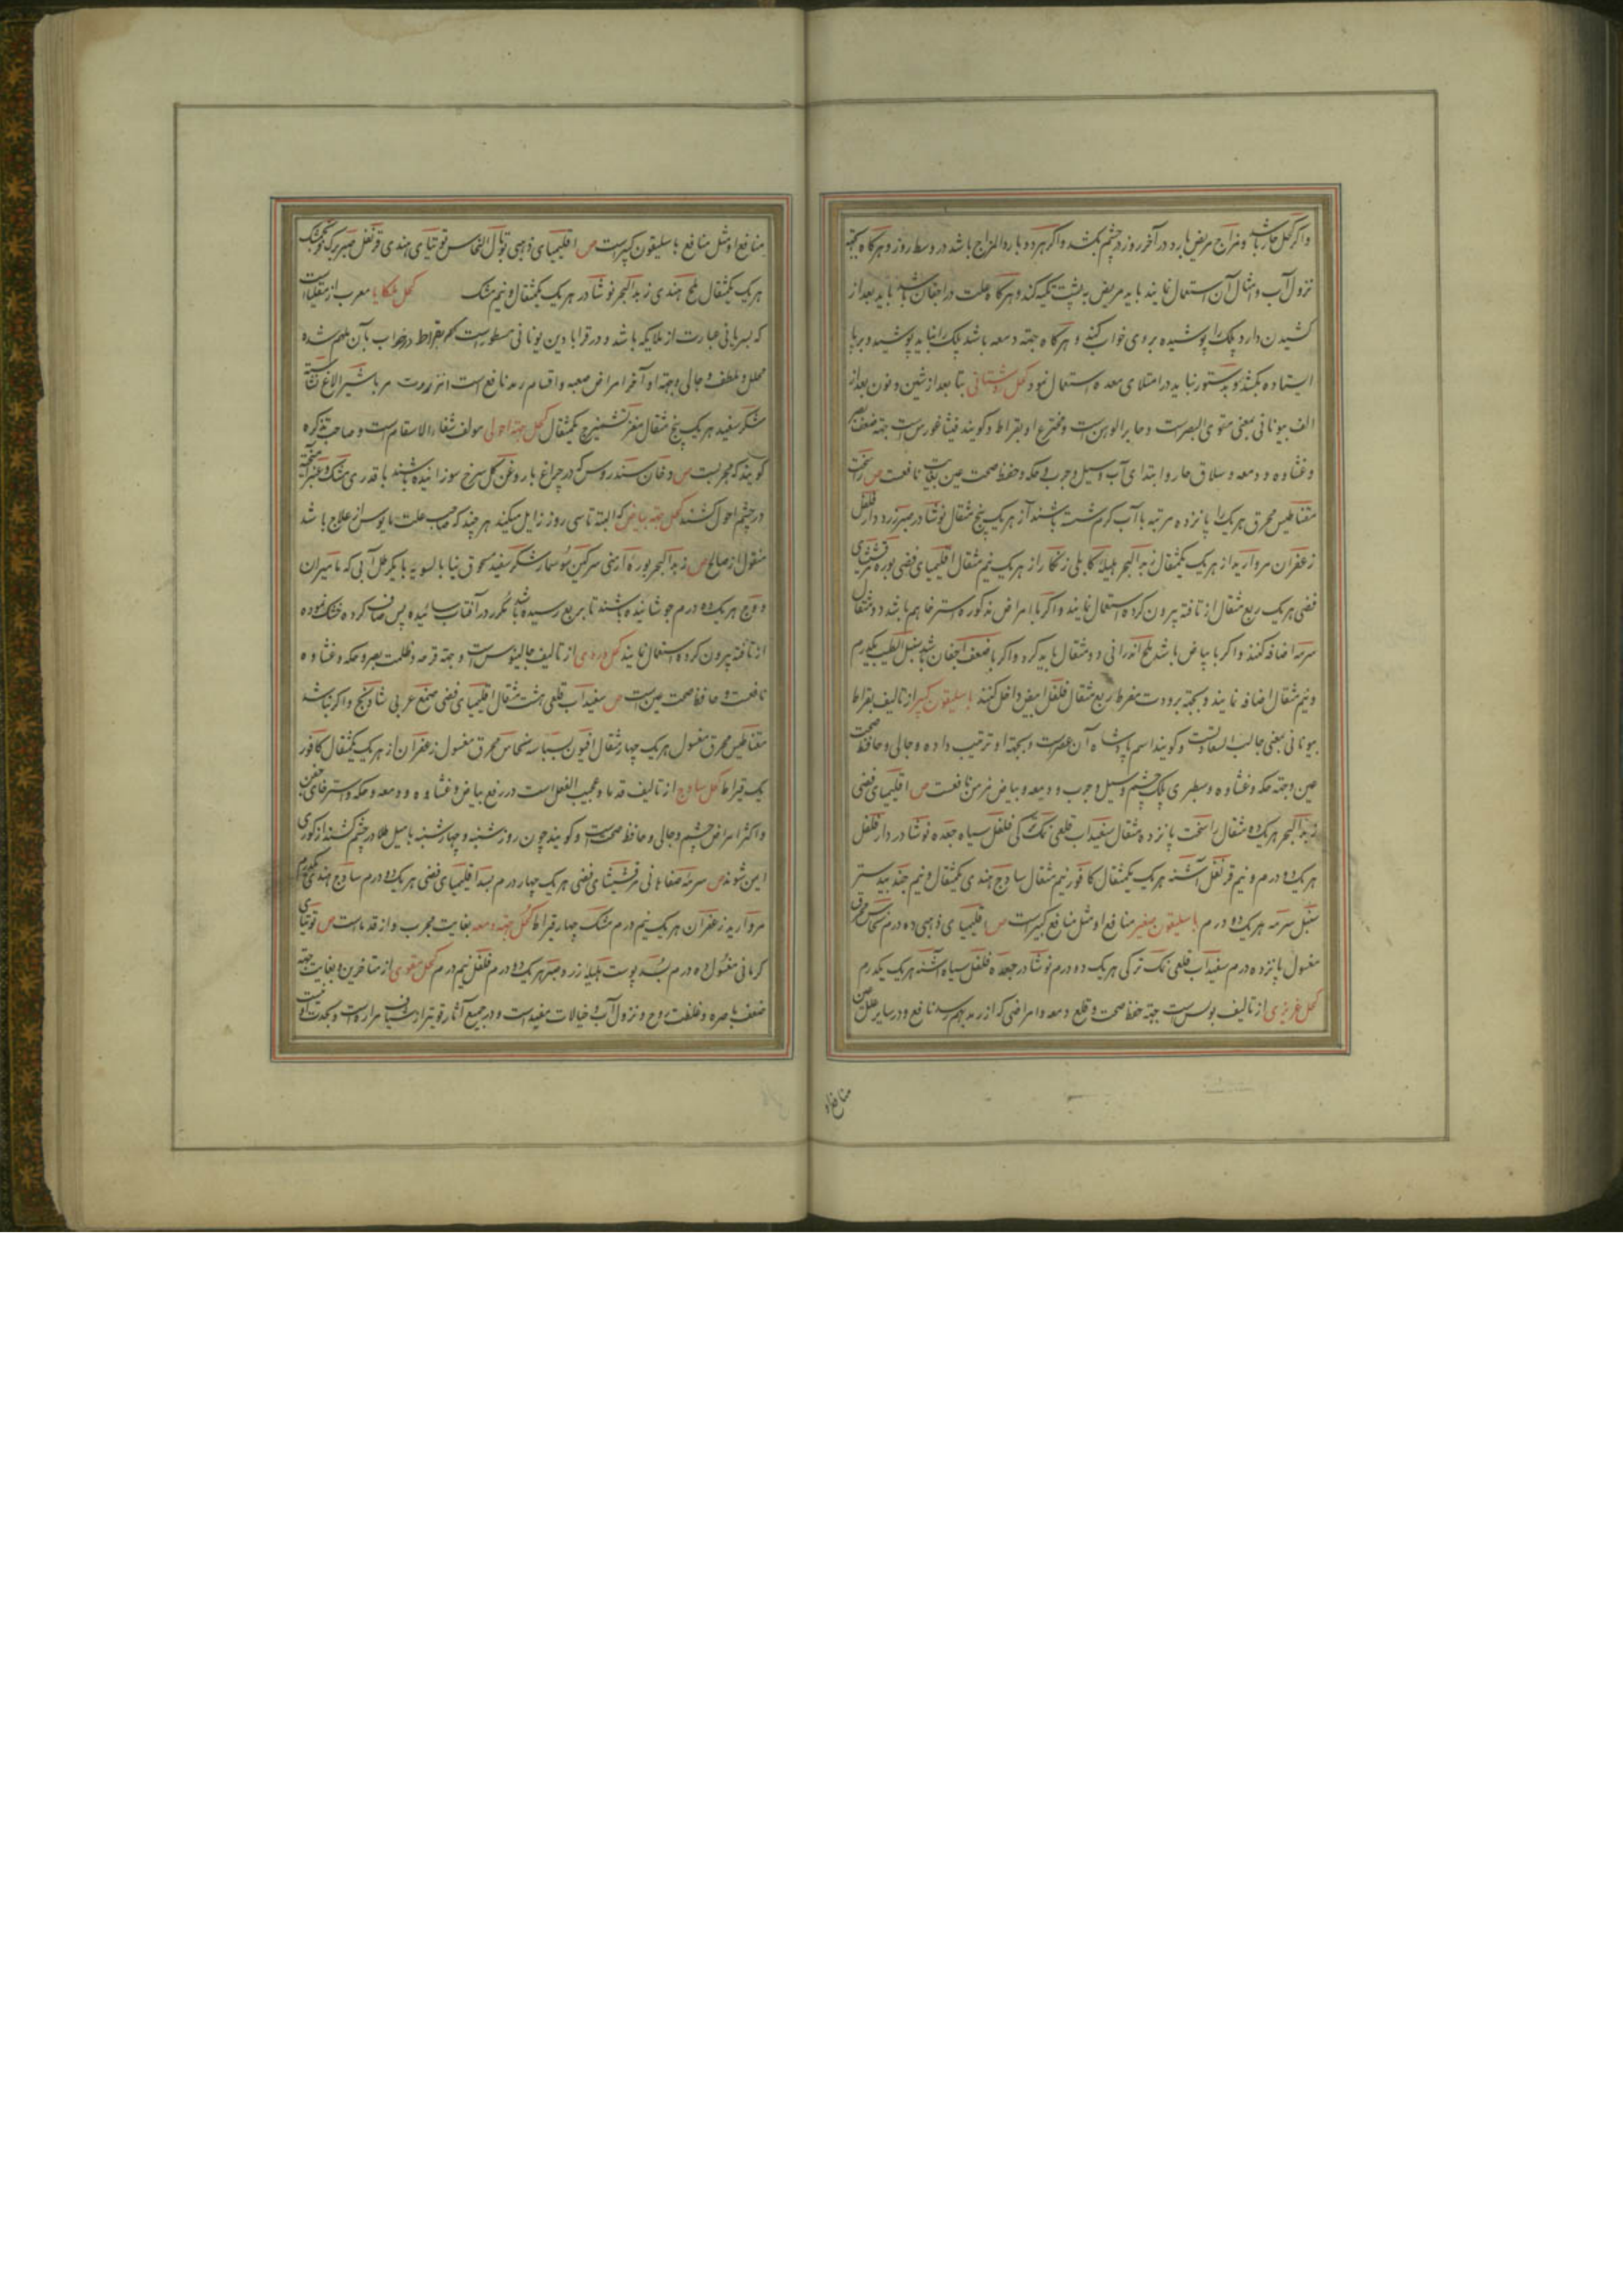 واگر کحل حار باشد و مزاج مریض بارد در آخر روز در چشم بکشد و اگر هر دو بارد المزاج باشد در وسط روز و هرگاه بجهة
نزول آب و امثال آن استعمال نمایند باید مریض به پشت تکیه کند و هرگاه علت در اجفان باشد باید بعد از
کشیدن دارو پلک را پوشیده بر روی خواب کند و هرگاه جهة دمعه باشد پلک را نباید پوشید و برپا
ایستاده بکشد و بدستور نباید در امتلای معده استعمال نمود کحل روشنائی بتا بعد از شین و نون بعد از
الف بیونانی بمعنی مقوی البصر است و جابر الوهن است و مخترع او بقراط و گویند فیثاغورس است جهة ضعف بصر
و غشاوه و دمعه و سلاق حار و ابتدای آب و سبل و جرب و حکه و حفظ صحت عین بغایت نافعست ص راسخت
مغناطیس محرق هر یک را پانزده مرتبه با آب گرم شسته باشند از هر یک پنج مثقال نوشادر صبر زرد دار فلفل
زعفران مروارید از هر یک یکمثقال زبد البحر هلیله کابلی زنگار از هر یک نیم مثقال اقلیمیای فضی بوره مرقشیشای
فضی هر یک ربع مثقال از تافته بیرون کرده استعمال نمایند و اگر با امراض مذکوره استرخا هم باشد دو مثقال
سرمه اضافه کنند و اگر با بیاض باشد ملح اندرانی دو مثقال باید کرد و اگر با ضعف اجفان باشد سنبل الطیب یکدرم
و نیم مثقال اضافه نمایند و بجهة برودت مفرط ربع مثقال فلفل ابیض داخل کنند باسلیقون کبیر از تالیف بقراط
بیونانی بمعنی جالب السعادتست و گویند اسم پادشاه آن عصر است و بجهة او ترتیب داده و جالی و حافظ صحت
عین و جهة حکه و غشاوه و سطبری پلک چشم و سبل و جرب و دمعه و بیاض مزمن نافعست ص اقلیمیای فضی
زبد البحر هر یک ده مثقال راسخت پانزده مثقال سفیداب قلعی نمک ترکی فلفل سیاه جعده نوشادر دار فلفل
هر یک دو درم و نیم قرنفل اشنه هر یک یکمثقال کافور نیم مثقال ساذج هندی یکمثقال و نیم جند بیدستر
سنبل سرمه هر یک ده درم باسلیقون صغیر منافع او مثل منافع کبیر است ص اقلیمیای ذهبی ده درم نحاس محرق
مغسول پانزده درم سفیداب قلعی نمک ترکی هر یک دو درم نوشادر جعده فلفل سیاه اشنه هر یک یکدرم
کحل عزیزی از تالیف بولس است جهة حفظ صحت و قلع دمعه و امراضی که از رمد بهم رسد نافع و در سایر علل عین
منافع او
منافع او مثل منافع باسلیقون کبیر است ص اقلیمیای ذهبی توبال النحاس توتیای هندی قرنفل صبر برگ فرنجمشک
هر یک یکمثقال ملح هندی زبد البحر نوشادر هر یک یکمثقال و نیم مشک کحل ملکایا معرب از
که بسریانی عبارت از ملایکه باشد و در قرابادین یونانی مسطور است که بقراط در خواب بآن ملهم شده
محلل و ملطف و جالی و جهة اواخر امراض صعبه و اقسام رمد نافع است انزروت مربا بشیر الاغ نشاسته
شکر سفید هر یک پنج مثقال مغز تشمیزج یکمثقال کحل جهة احولی مولف شفاء الاسقام است و صاحب تذکره
گویند که مجربست ص دخان سندروس که در چراغ با روغن گل سرخ سوزانیده باشند با قدری مشک و عنبر آمیخته
در چشم احول کشند کحل جهة بیاض که البته تا سی روز زایل میکند هر چند که صاحب علت مایوس از علاج باشد
منقول از صالح ص زبد البحر بوره ارمنی سرگین سوسمار شکر سفید مسحوق بنیا بالسویه با یکرطل آبی که مامیران
و وج هر یک ده درم جوشانیده باشند تا بربع رسیده باشد مکرر در آفتاب سائیده پس صاف کرده خشک نموده
از تافته بیرون کرده استعمال نمایند کحل وردی از تالیف جالینوس است و جهة قرحه و ظلمت بصر و حکه و غشاوه
نافعست و حافظ صحت عین است ص سفیداب قلعی هشت مثقال اقلیمیای فضی صمغ عربی شادنج و اگر نباشد
مغناطیس محرق مغسول هر یک چهار مثقال افیون بسباسه نحاس محرق مغسول زعفران از هر یک یکمثقال کافور
یک قیراط کحل ساذج از تالیف قدما و عجیب الفعل است در رفع بیاض و غشاوه و دمعه و حکه و استرخای جفن
و اکثر امراض چشم و جالی و حافظ صحت است و گویند چون روز شنبه و چهارشنبه با میل طلا در چشم کشند از کوری
ایمن شوند ص سرمه صفاهانی مرقشیشای فضی هر یک چهار درم بسد اقلیمیای فضی هر یک دو درم ساذج هندی یکدرم
مروارید زعفران هر یک نیم درم مشک چهار قیراط کحل جهة دمعه بغایت مجرب و از قدماست ص توتیای
کرمانی مغسول ده درم بسد پوست هلیله زرد و صبر هر یک دو درم فلفل نیم درم کحل مقوی از متاخرین و بغایت جهة
ضعف باصره و غلظت روح و نزول آب و خیالات مفید است و در جمیع آثار قویتر از شیاف مرارات است و بحدت او نیست